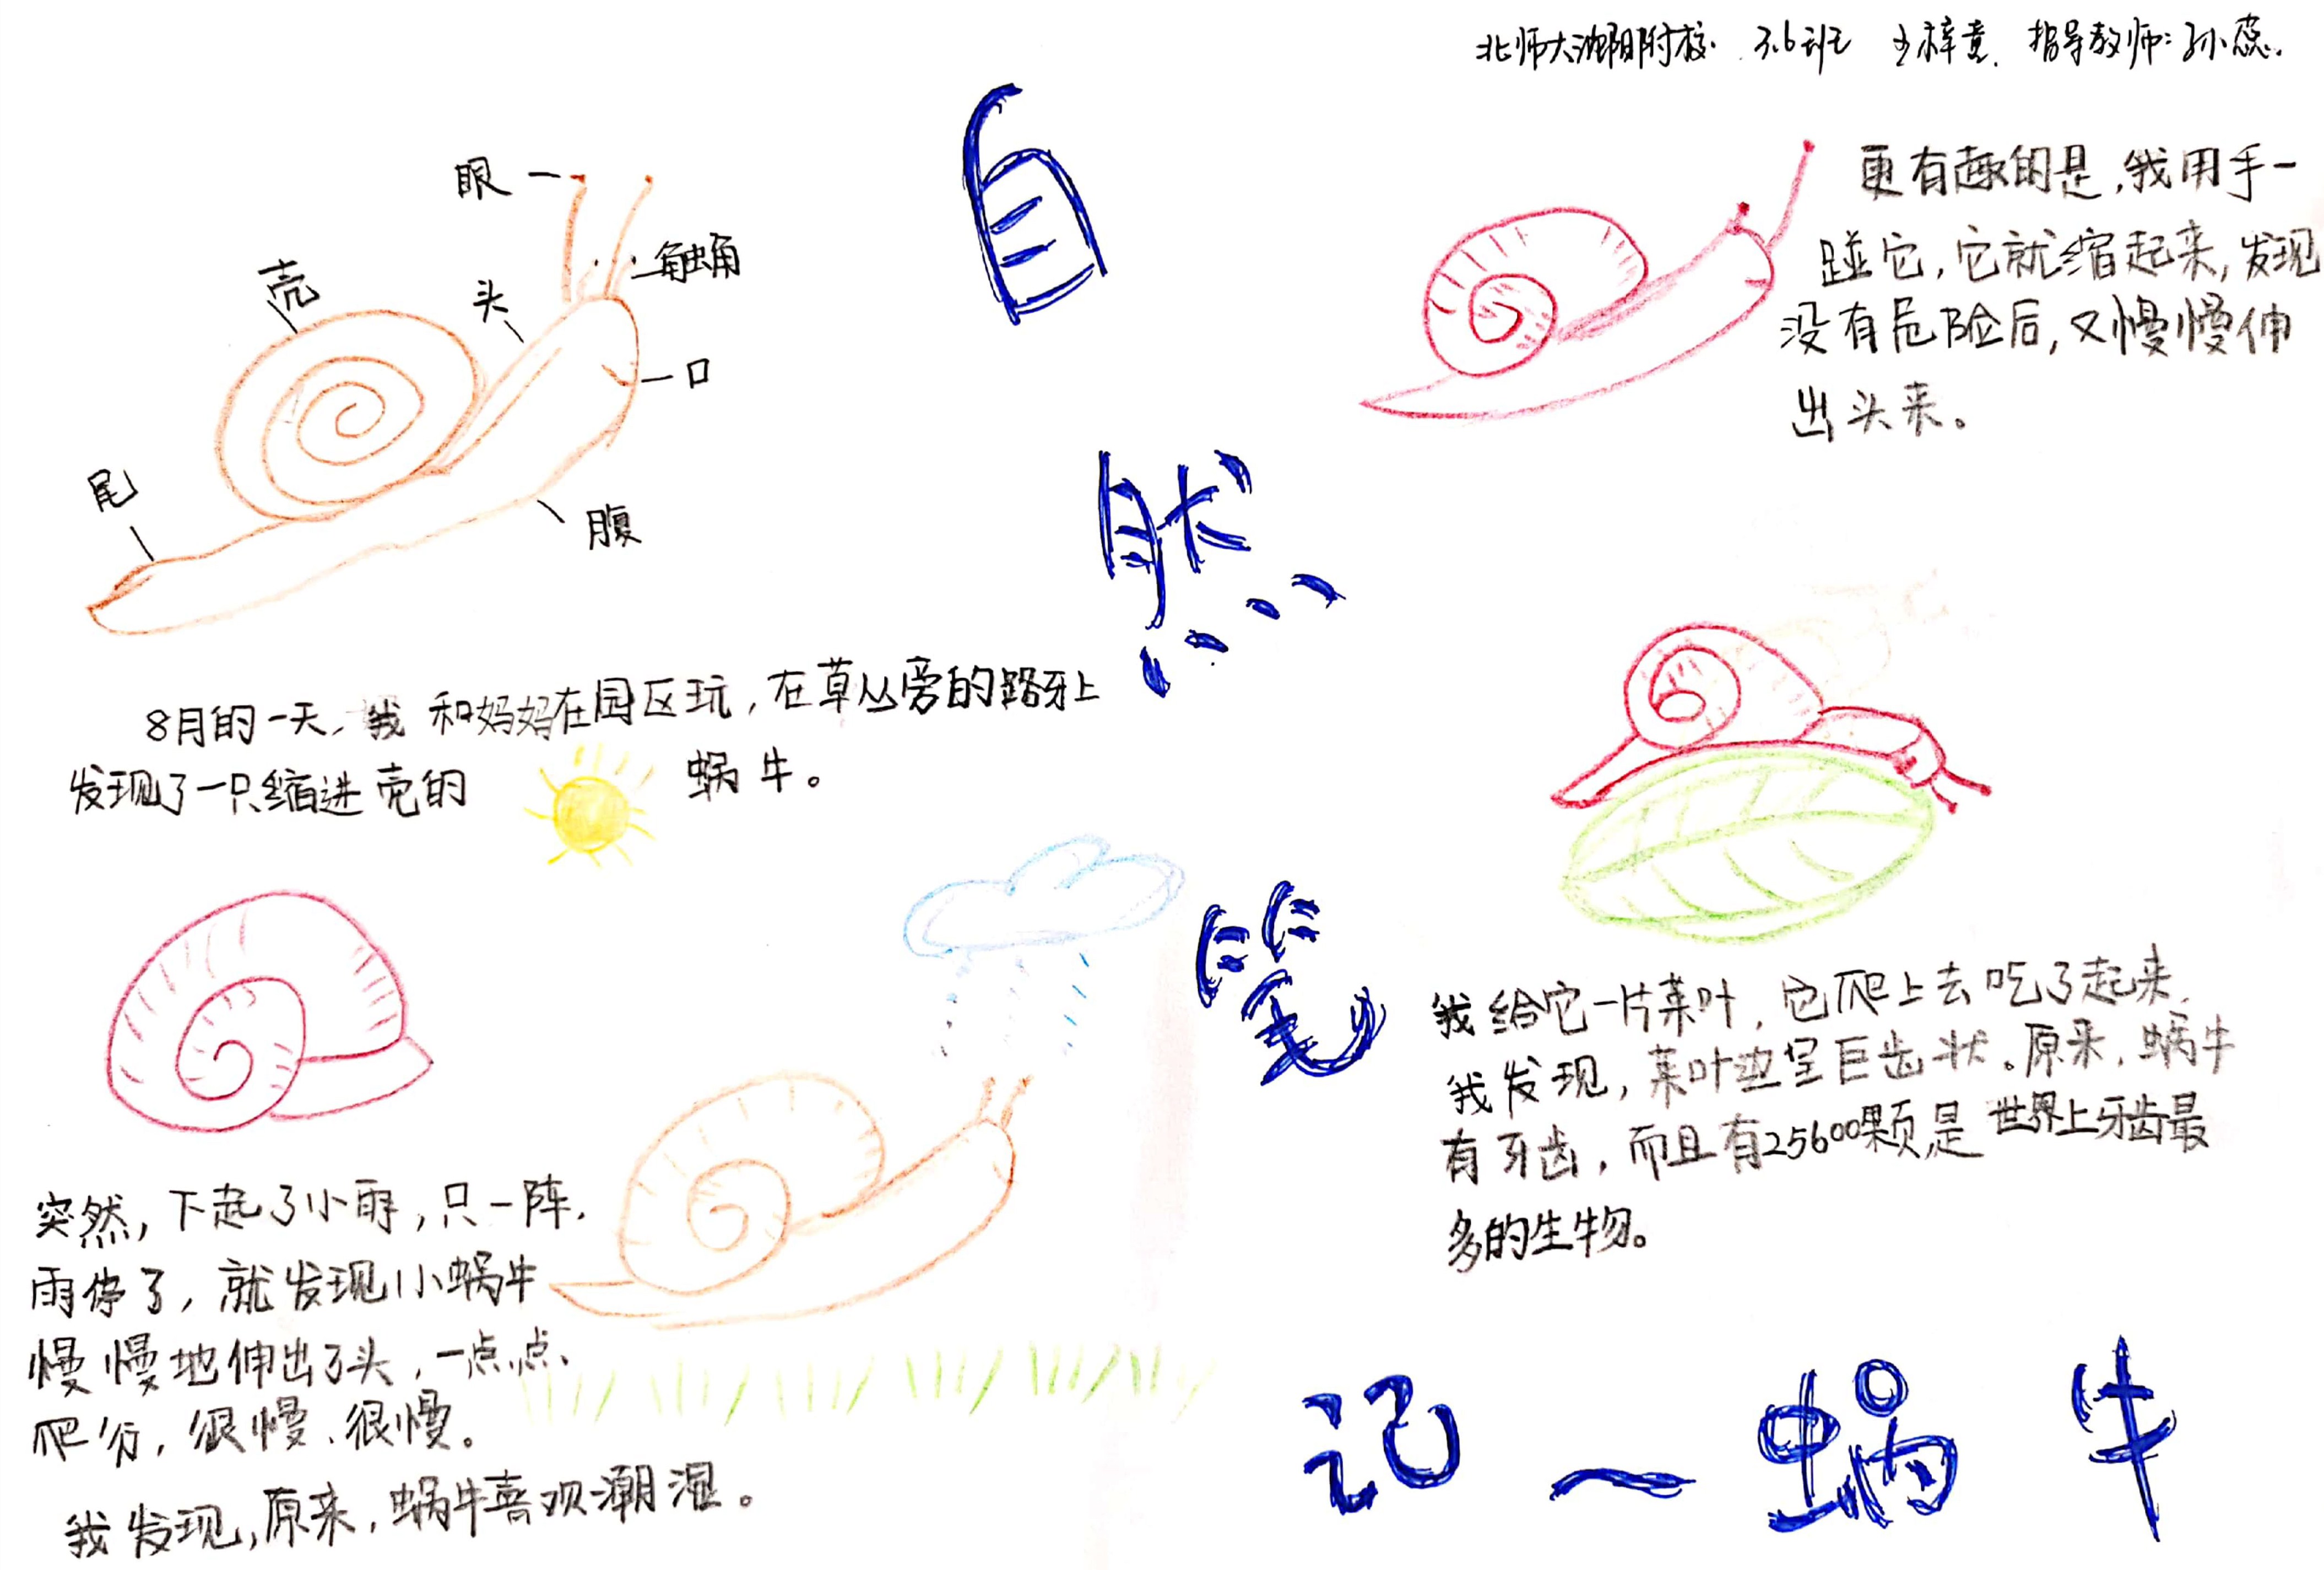 北师大沈阳附校 3.6班 王梓萱 指导教师:孙蕊.
自然笔记—蜗牛
眼
触角
壳
头
口
尾
腹
8月的一天,我和妈妈在园区玩,在草丛旁的路牙上
发现了一只缩进壳的 蜗牛。
突然,下起了小雨,只一阵,
雨停了,就发现小蜗牛
慢慢地伸出了头,一点点、
爬行,很慢、很慢。
我发现,原来,蜗牛喜欢潮湿。
更有趣的是,我用手一
碰它,它就缩起来,发现
没有危险后,又慢慢伸
出头来。
我给它一片菜叶,它爬上去吃了起来,
我发现,菜叶边呈巨齿状。原来,蜗牛
有牙齿,而且有25600颗,是世界上牙齿最
多的生物。